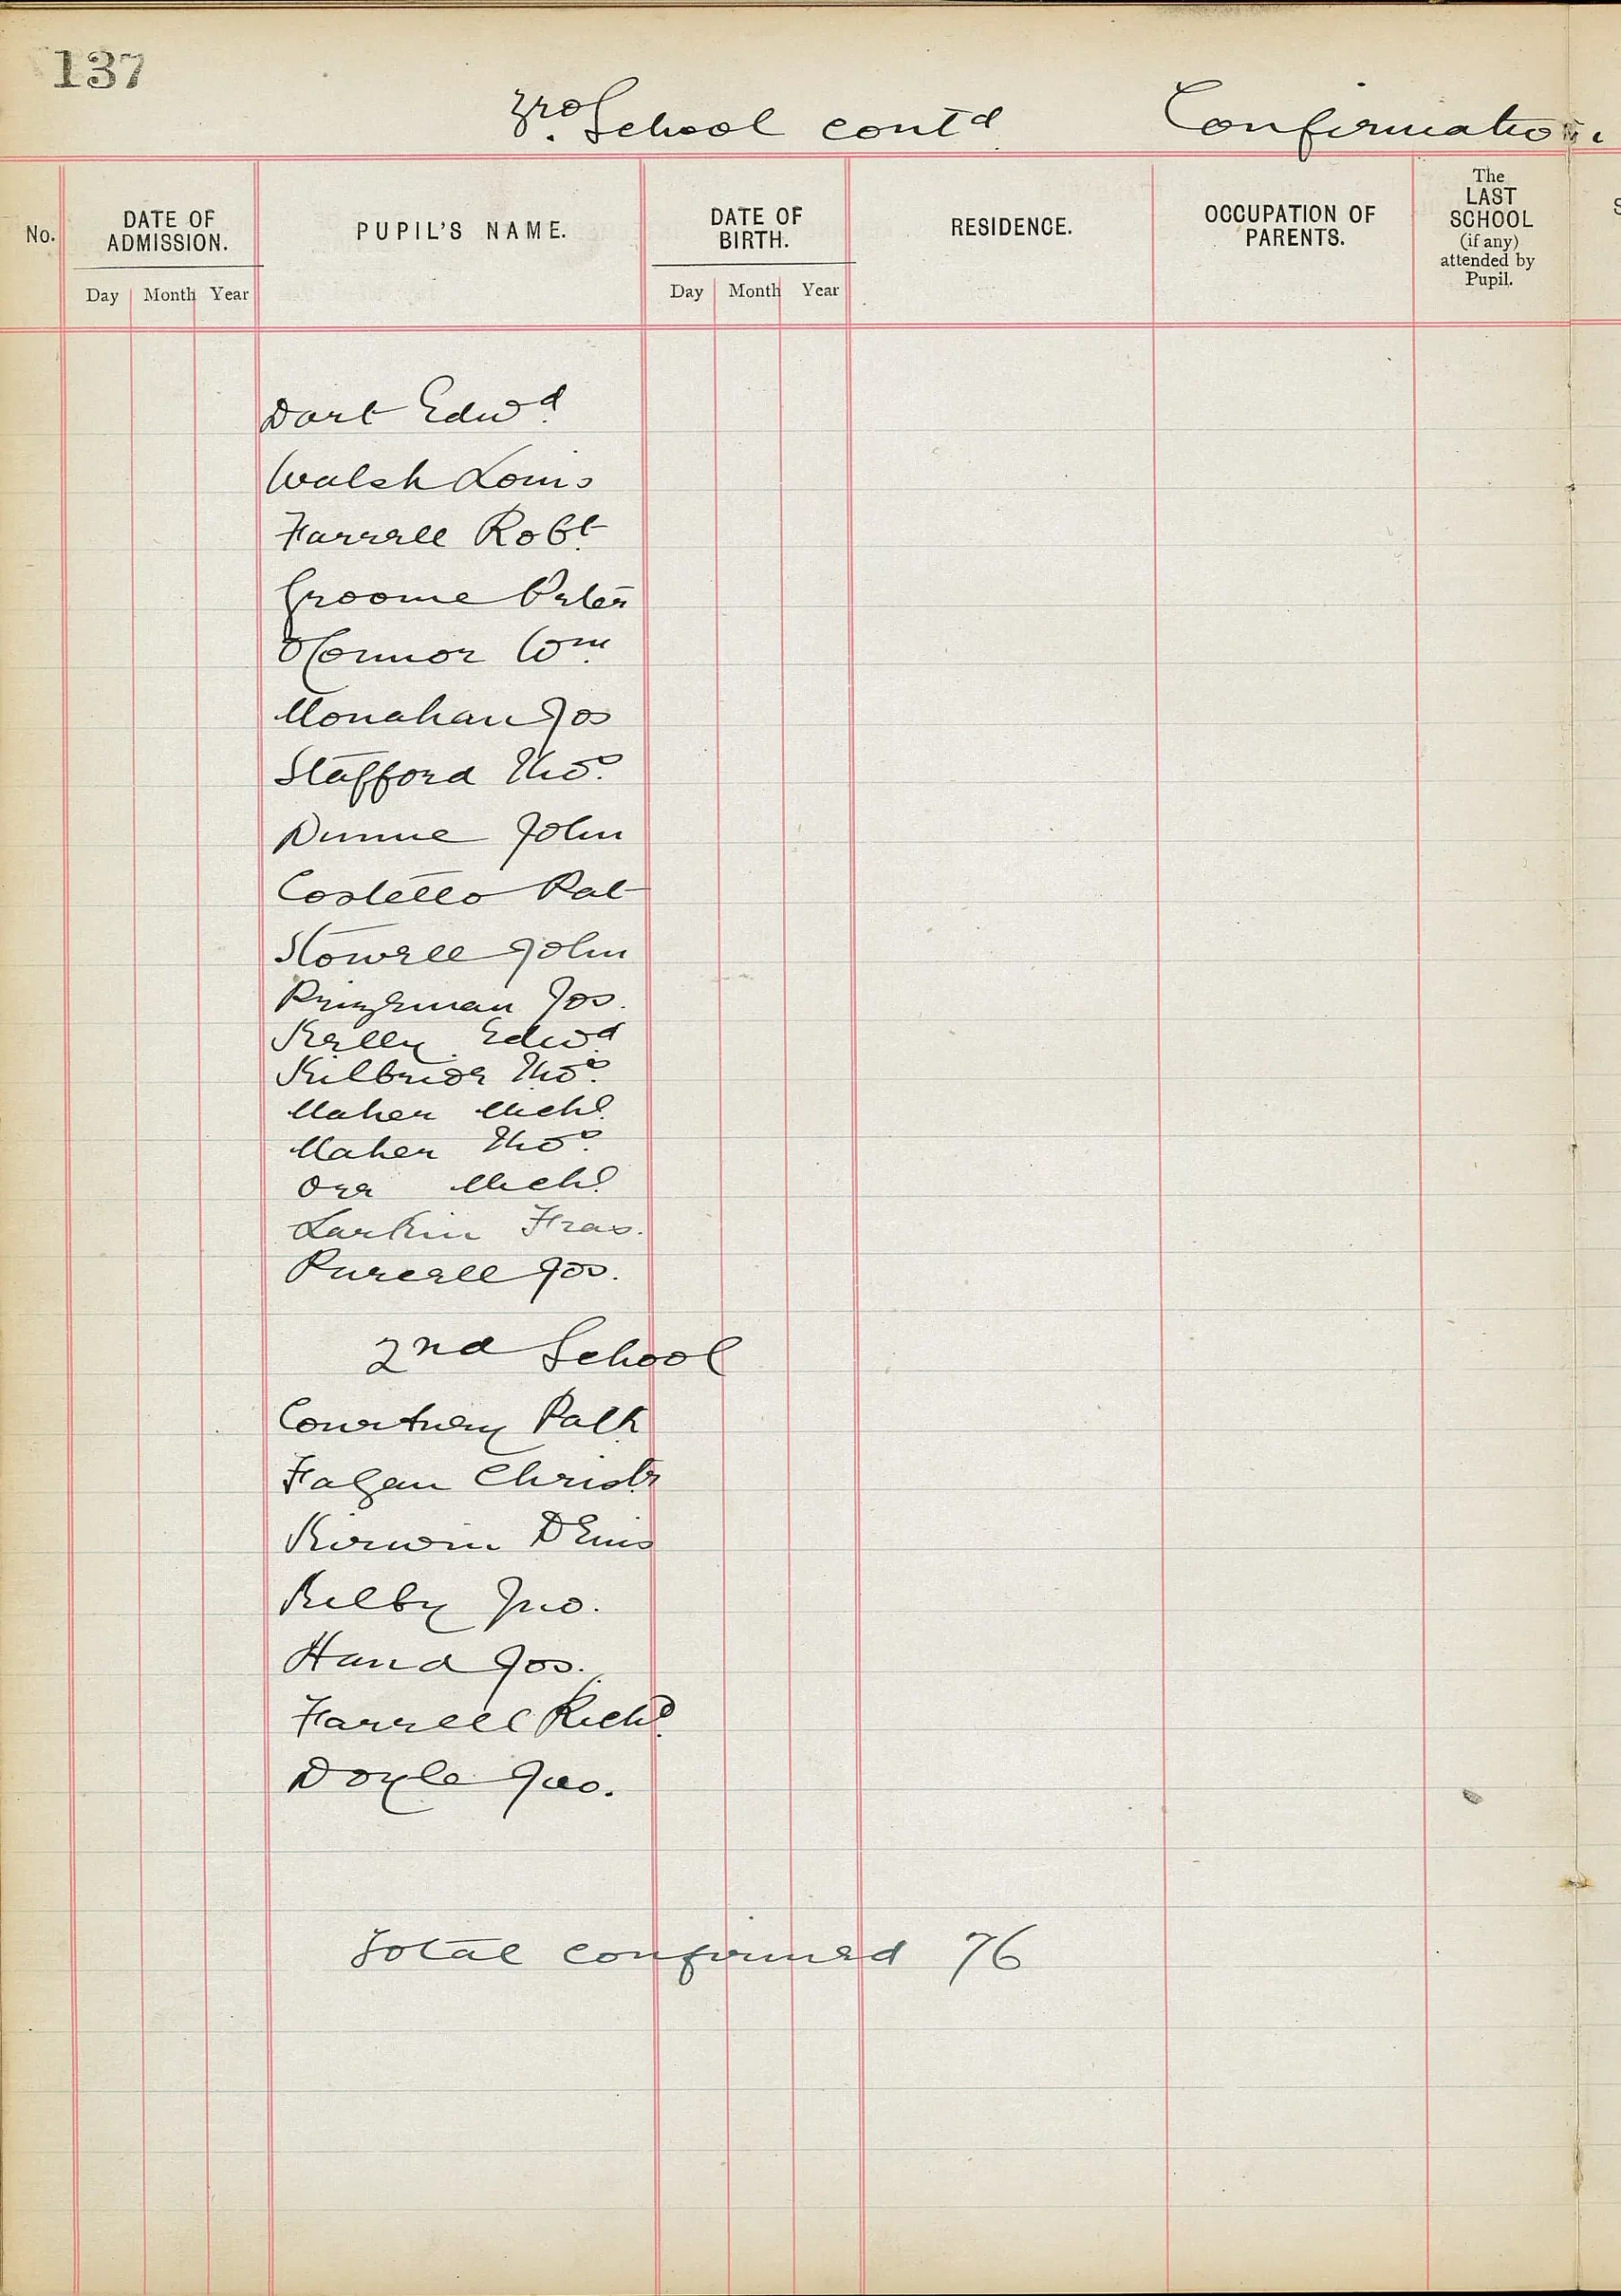 137
3rd. School cont'd Confirmation.
No. DATE OF ADMISSION. PUPIL'S NAME. DATE OF BIRTH. RESIDENCE. OCCUPATION OF PARENTS. The LAST SCHOOL (if any) attended by Pupil.
Day Month Year Day Month Year
Dart Edwd.
Walsh Louis
Farrell Robt.
Groome Peter
O'Connor Wm.
Monahan Jos
Stafford Thos.
Dunne John
Costello Pat
Howell John
Jos.
Kelly Edwd.
Kilbride Thos.
Maher Michl.
Maher Thos.
Orr Michl.
Larkin Fras.
Purcell Jos.
2nd School
Courtney Patk
Fagan Christr
Kirwin Denis
Kelby Jno.
Hand Jos.
Farrell Richd.
Doyle Jno.
Total confirmed 76